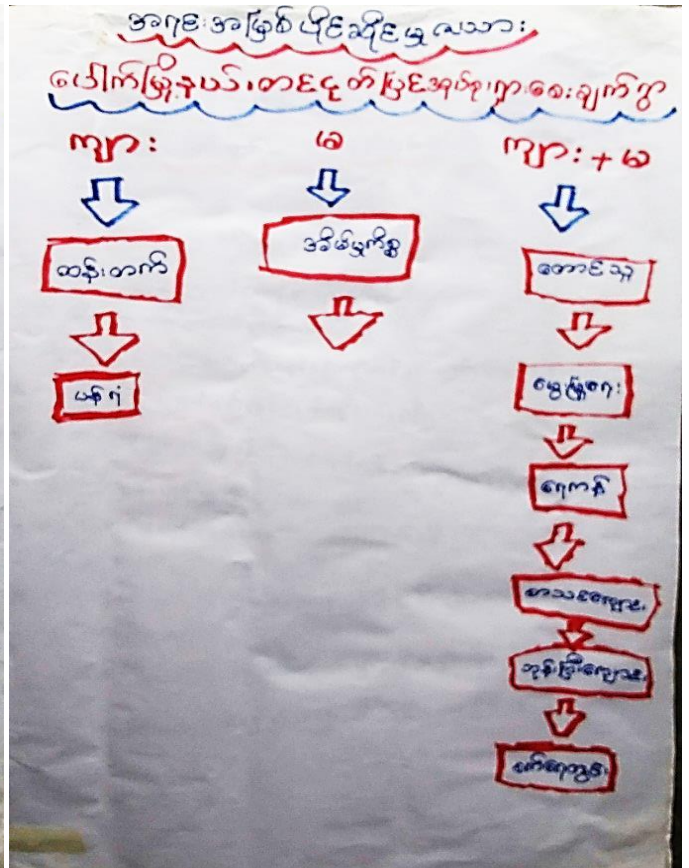 အရင်းအမြစ်ပိုင်ဆိုင်မှုဇယား
ပေါက်မြို့နယ်၊တင်ငုတ်ပြင်အုပ်စု၊ရှားစေးချက်ရွာ
ကျား
ထန်းတက်
ပန်ရံ
မ
အိမ်မှုကိစ္စ
ကျား + မ
တောင်သူ
မွေးမြူရေး
ရေကန်
စာသင်ကျောင်း
ဘုန်းကြီးကျောင်း
စက်ရေတွင်း